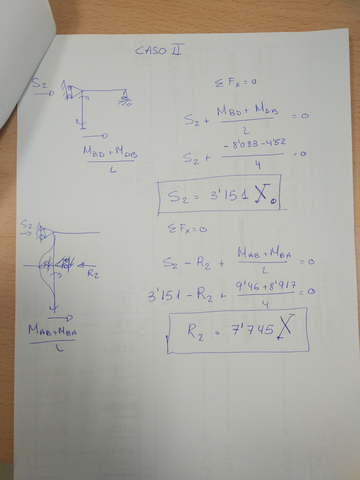 CASO II
S₂
ΣFx = 0
M_BD + M_DB
L
S₂ + (M_BD + M_DB)/L = 0
S₂ + (-8'083 - 4'52)/4 = 0
S₂ = 3'151 X₀
S₂
R₂
M_AB + M_BA
L
ΣFx = 0
S₂ - R₂ + (M_AB + M_BA)/L = 0
3'151 - R₂ + (9'46 + 8'917)/4 = 0
R₂ = 7'745 X